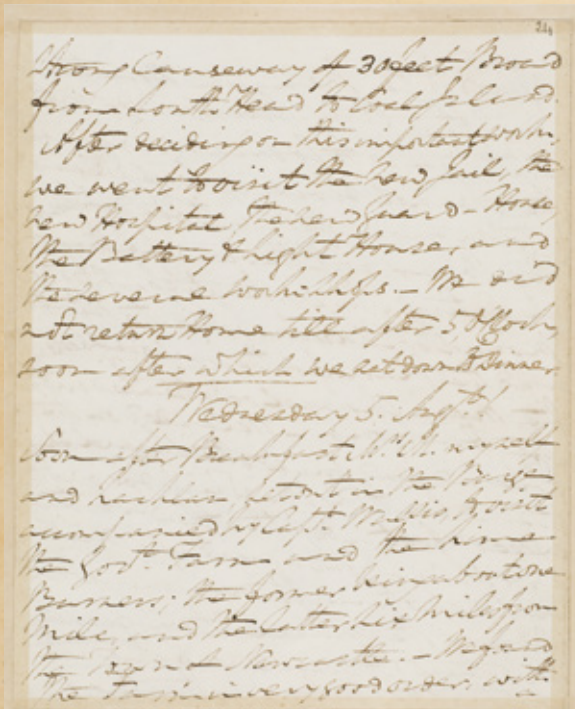 strong Causeway of 30 feet Broad
from South Head to Coal Island.
After deciding on this important work,
we went to visit the new Jail, the
new Hospital, the new Guard-House,
the Battery & Light House, and
the several
not return Home till after 5, O'Clock,
soon after which we set down to Dinner.
Wednesday 5. Augt.!
Soon after Breakfast Mrs. M. myself
and Lachlan set out in the Barge
accompanied by Capt. Wallis, to visit
the Govt. Farm and the Lime
Burners; the former being about one
Mile, and the latter six Miles from
the Town of Newcastle. — We found
the Farm in very good order, with